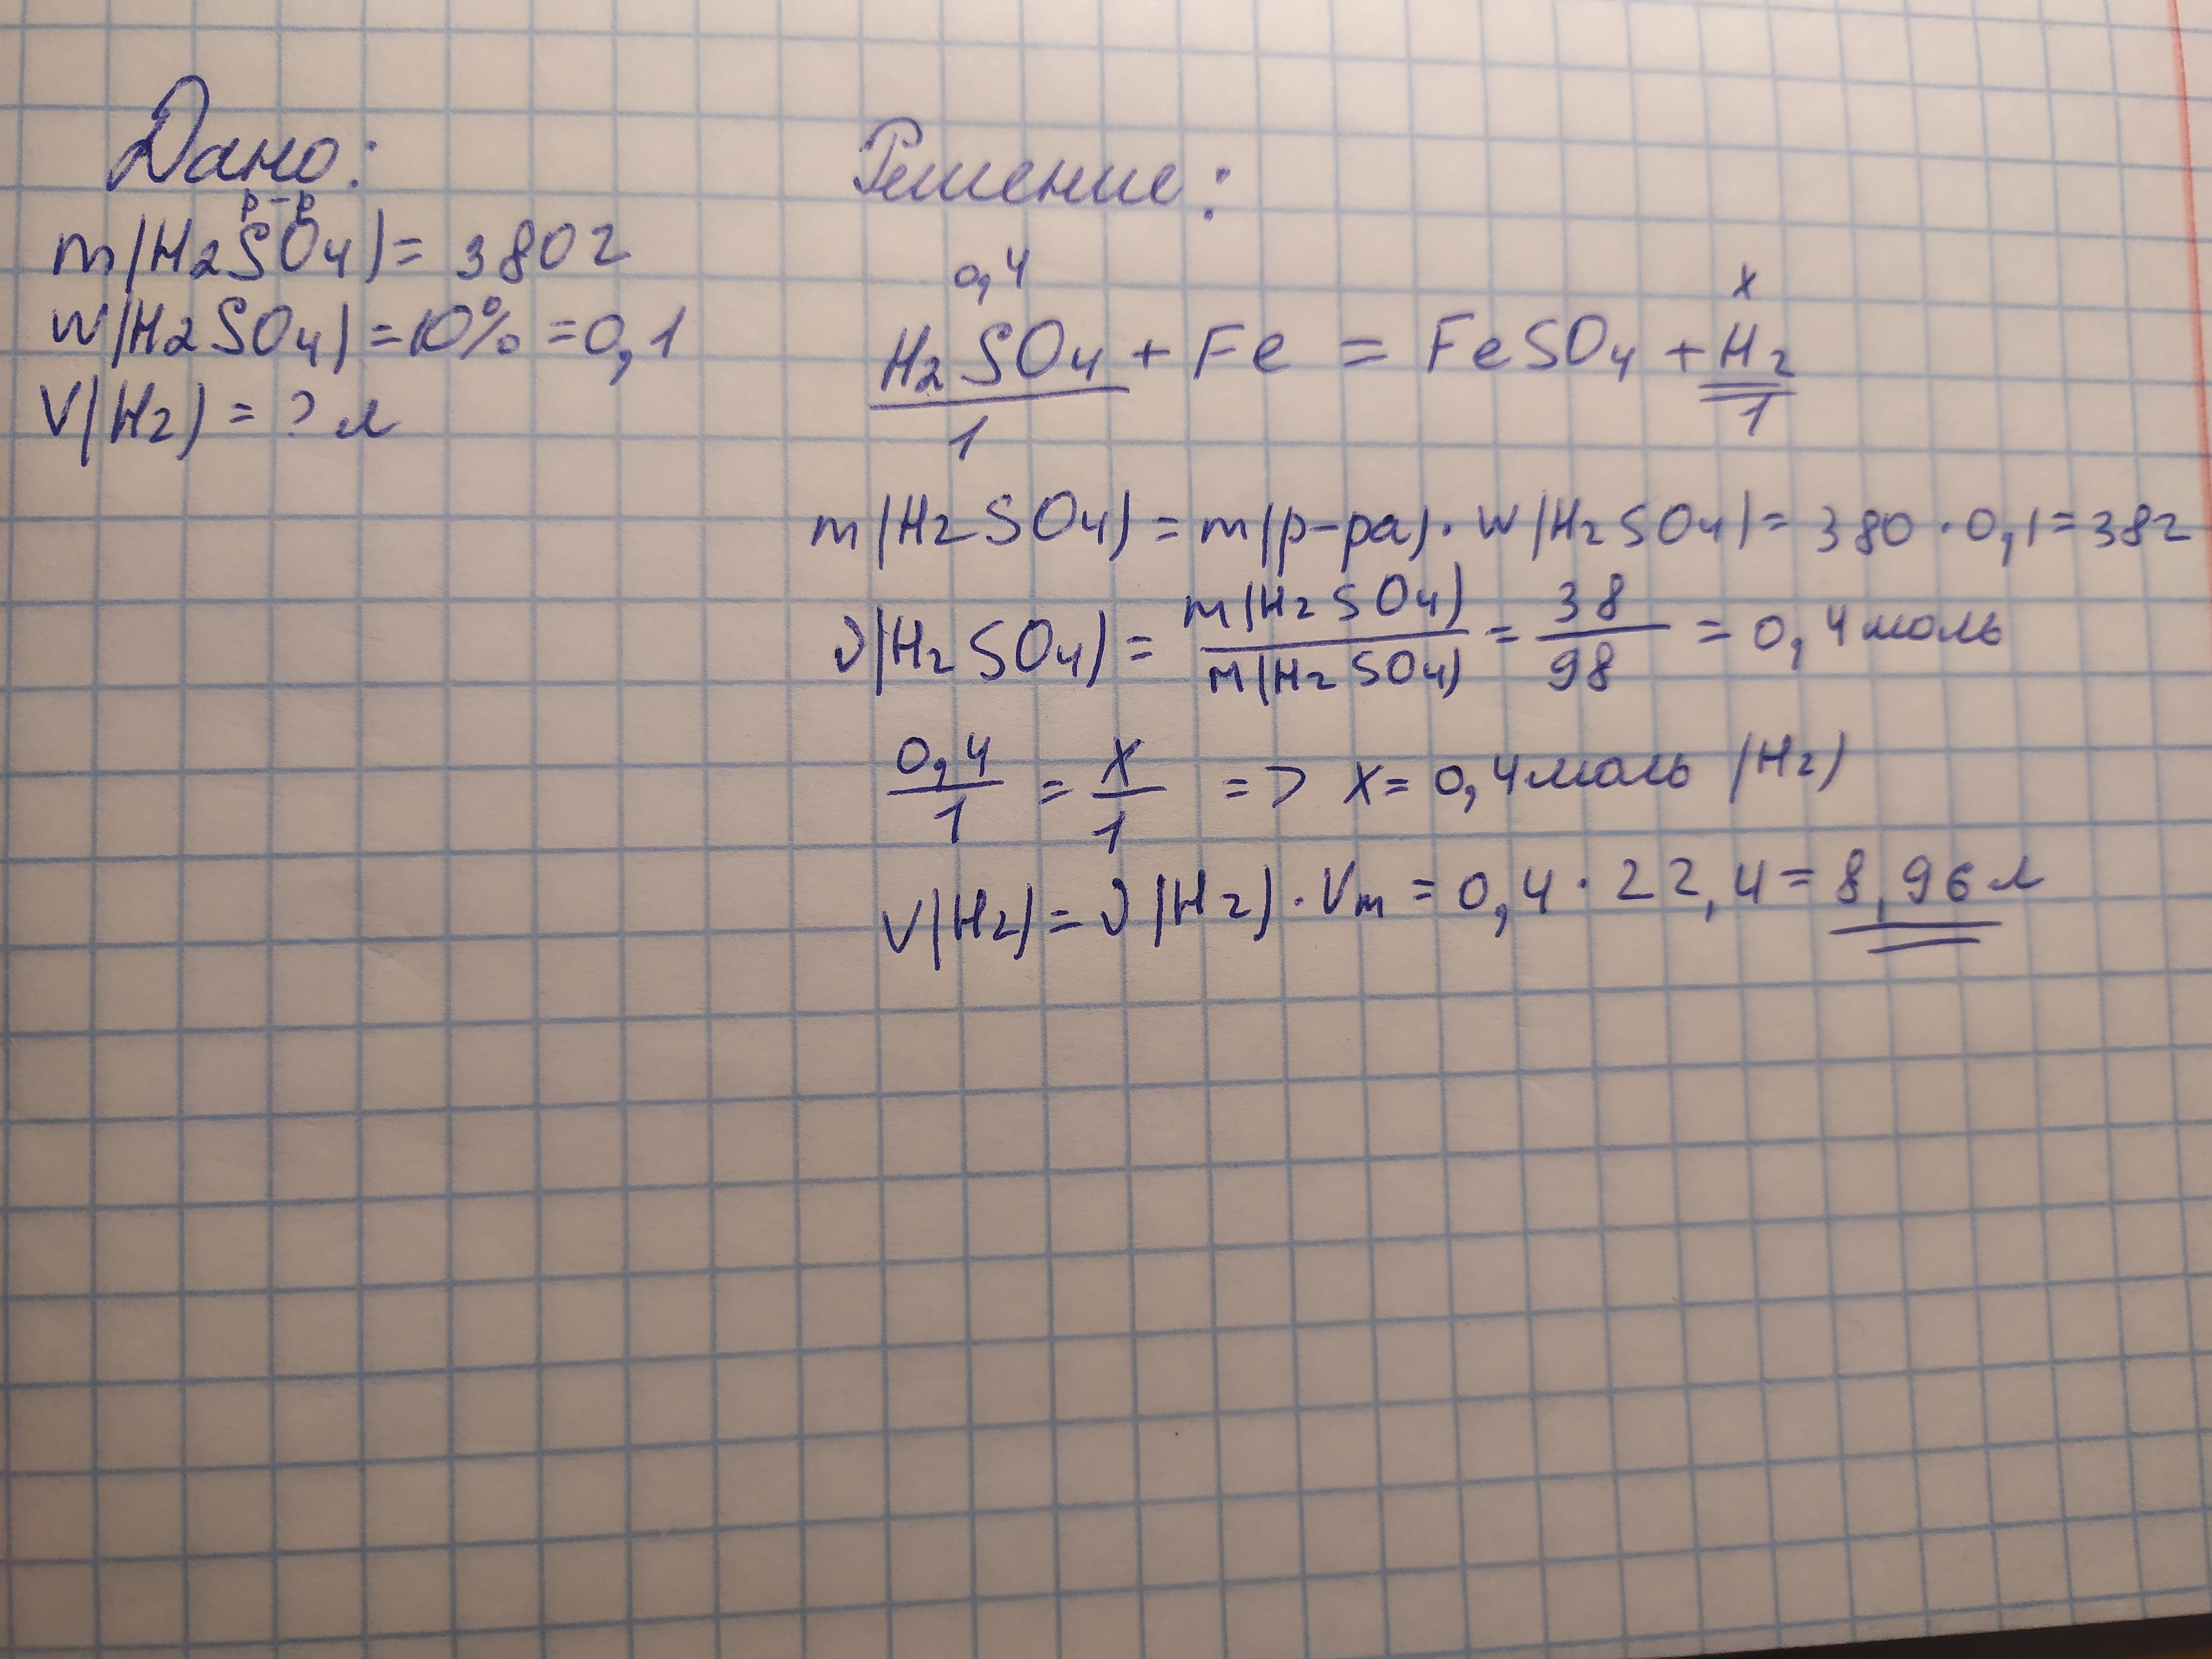 Дано:
р-р
m(H2SO4) = 380г
w(H2SO4) = 10% = 0,1
V(H2) = ? л
Решение:
0,4 x
H2SO4 + Fe = FeSO4 + H2
1 1
m(H2SO4) = m(р-ра) · w(H2SO4) = 380 · 0,1 = 38г
ν(H2SO4) = m(H2SO4) / M(H2SO4) = 38 / 98 = 0,4 моль
0,4 / 1 = x / 1 => x = 0,4 моль (H2)
V(H2) = ν(H2) · Vm = 0,4 · 22,4 = 8,96 л